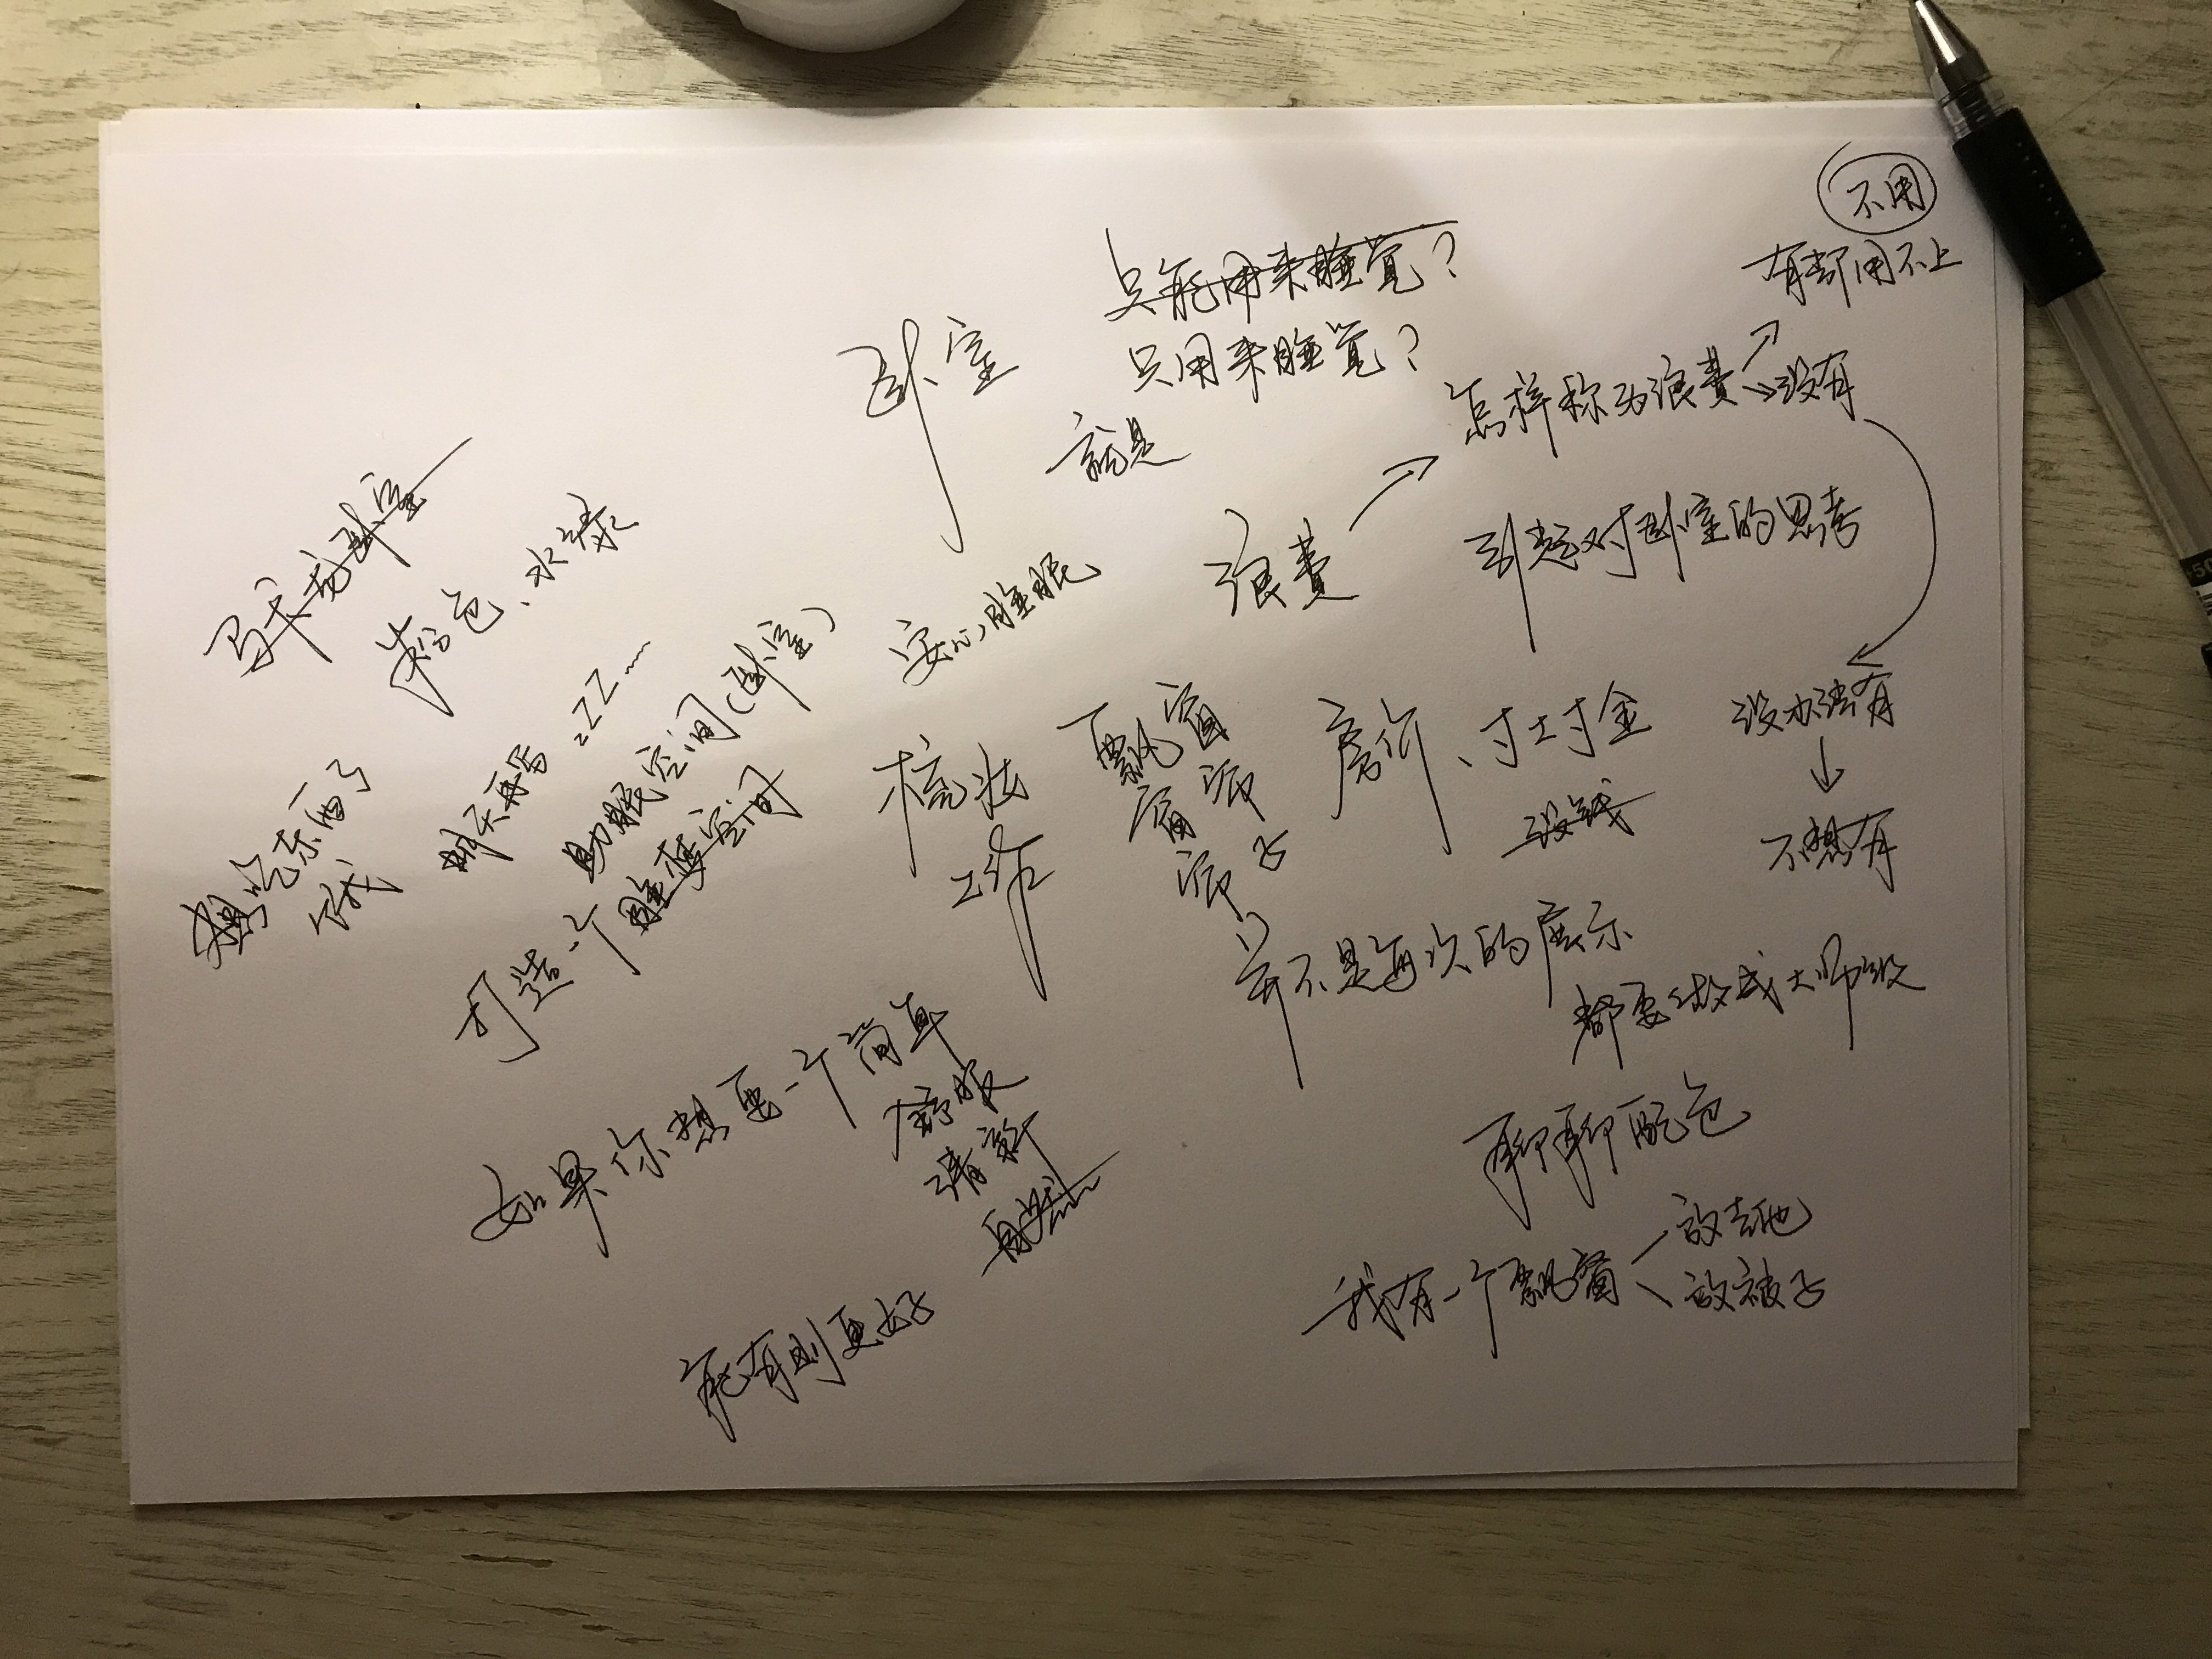 不用
有却用不上
只能用来睡觉？
只用来睡觉？
卧室
就是
怎样称为浪费
没有
浪费
引起对卧室的思考
马卡龙卧室
粉色、水绿
安心睡眠
想吃东西了
饿
明天再写 zZZ……
助眠空间（卧室）
打造一个睡梦空间
梳妆
工作
飘窗
窗帘
帘子
房价、寸土寸金
没钱
没办法有
不想有
并不是每次的展示
都要做成大师级
如果你想要一个简单
舒服
清新
自然
聊聊配色
我有一个飘窗
放吉他
放被子
能有则更好